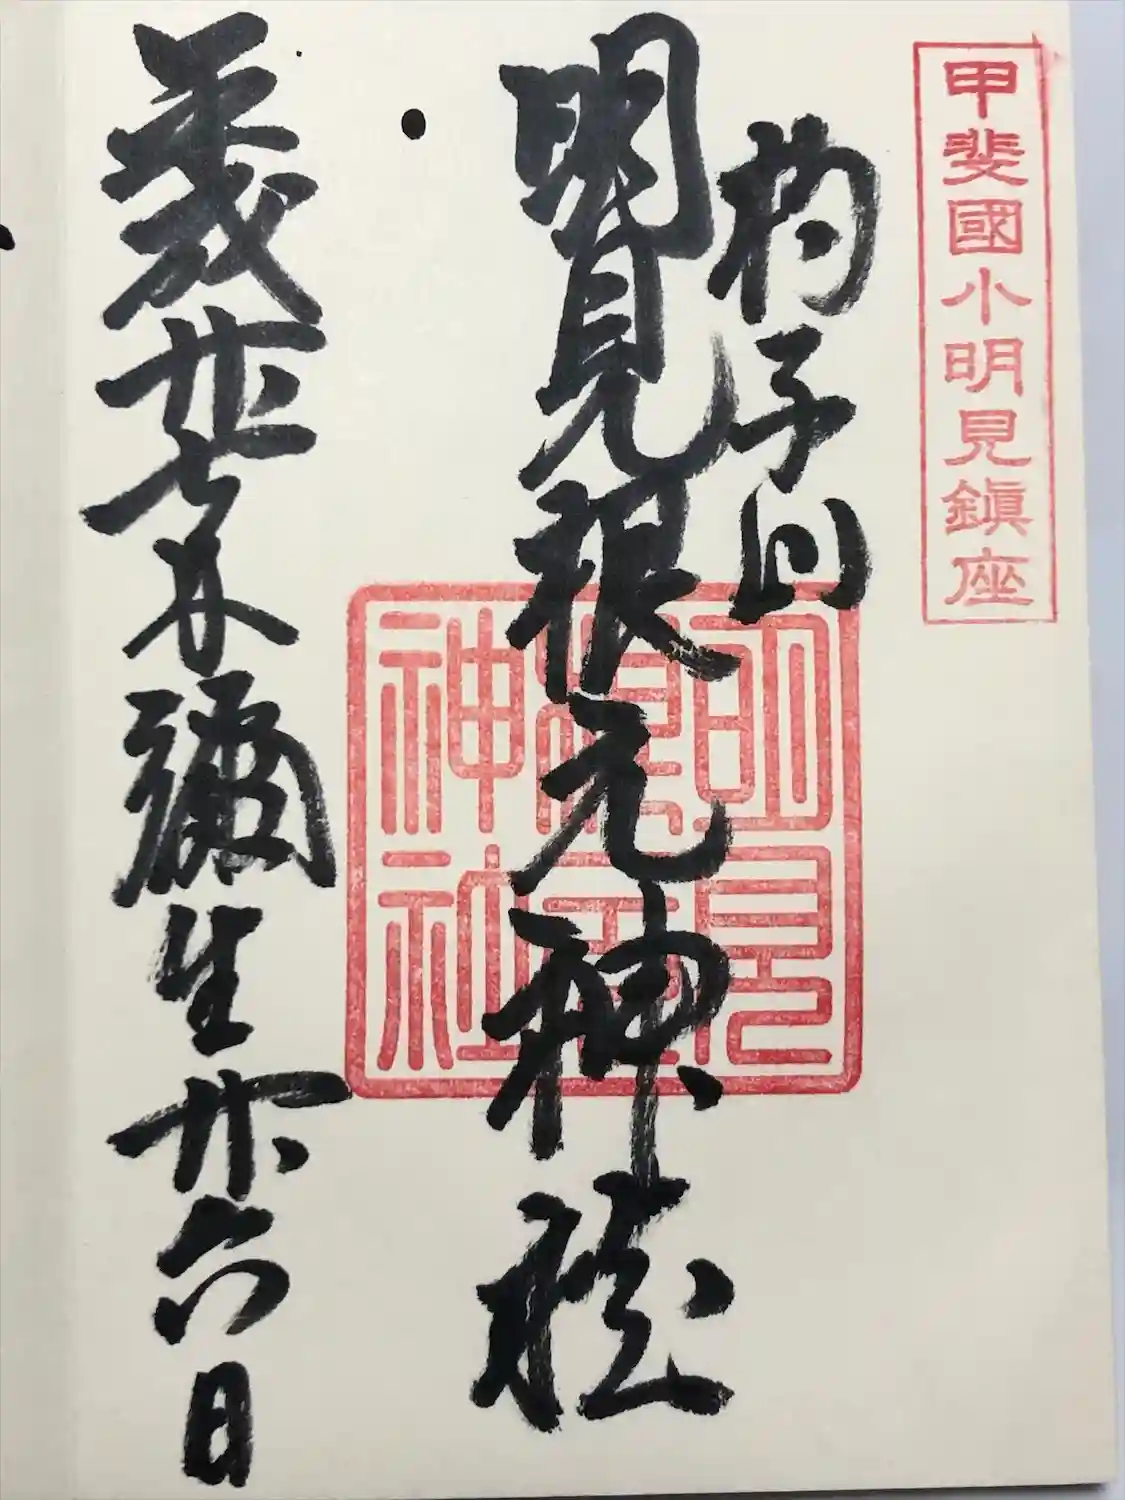 甲斐國小明見鎭座
杓子山
明見根元神社
明見根元神社
平成廿七年彌生廿六日